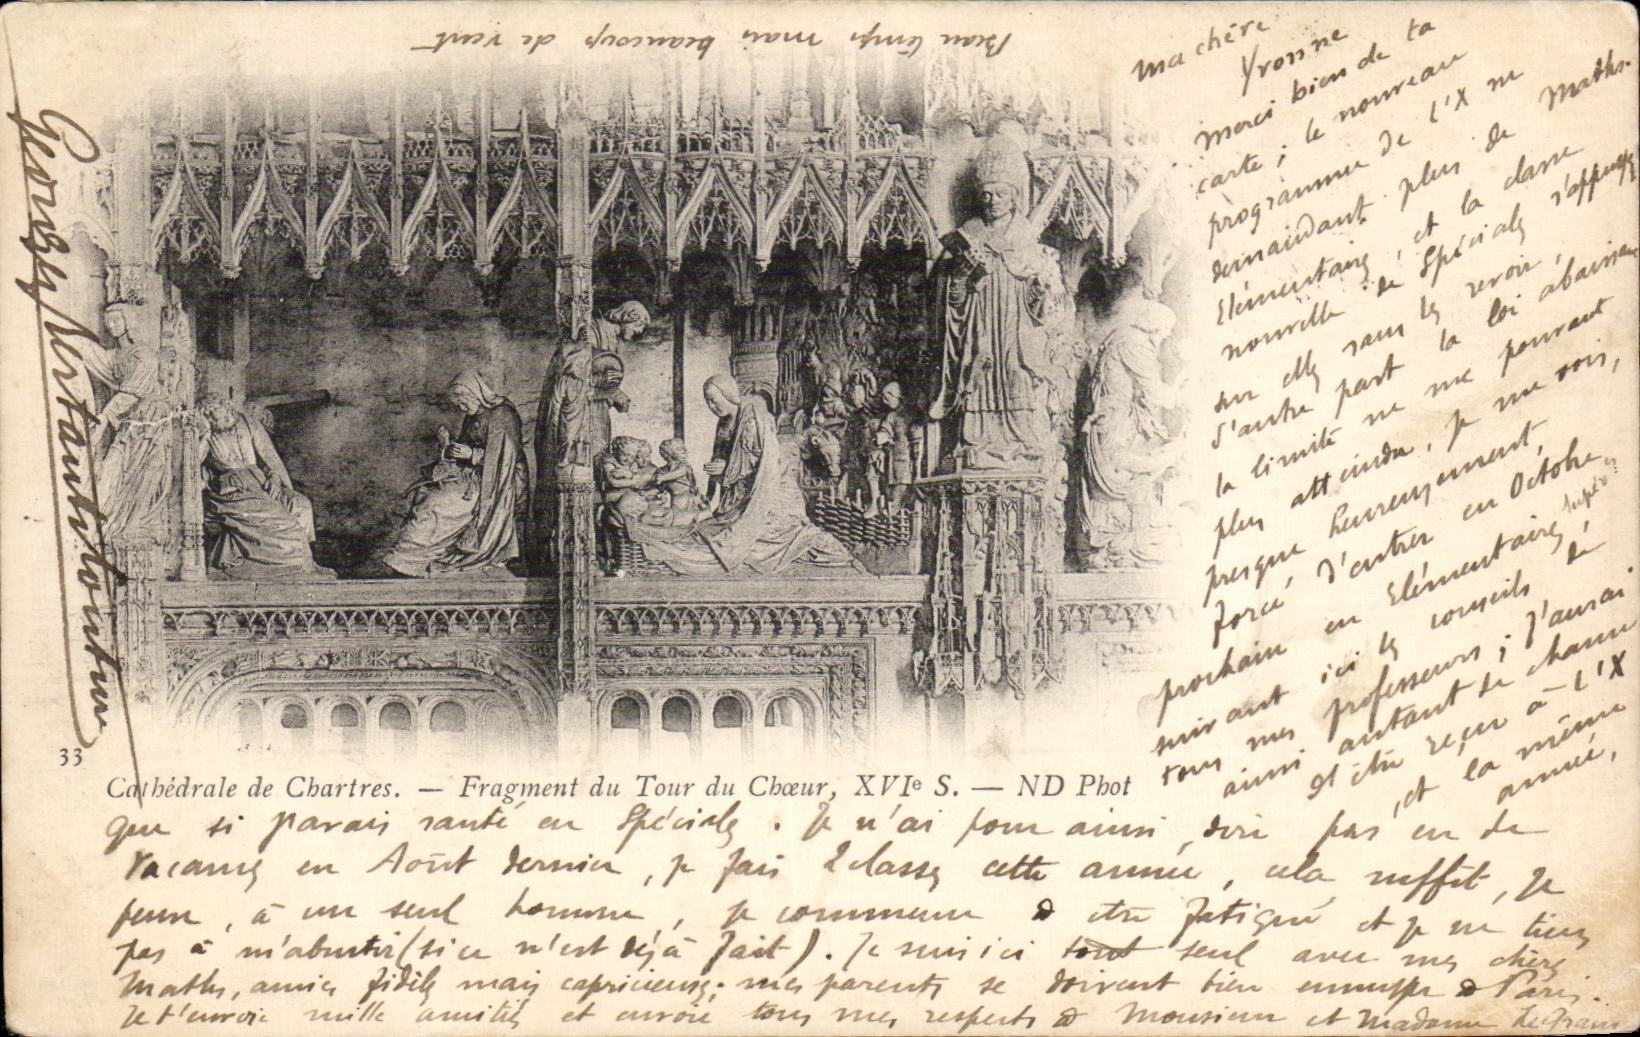 Beau temps mais beaucoup de vent
Ma chère
Yvonne
Merci bien de ta
carte ; le nouveau
programme de l'X ne
demandant plus de Maths.
Elémentaires, et la classe
nouvelle de Spéciales s'appuyant
sur elles sans les revoir,
d'autre part la loi abaissant
la limite ne me pouvant
plus atteindre, je me vois,
presque heureusement,
forcé, d'entrer en Octobre
prochain en Elémentaires supér
suivant ici les conseils de
tous mes professeurs ; j'aurai
ainsi autant de chance
d'être reçu à l'X
, et la même
année,
33
Cathédrale de Chartres. — Fragment du Tour du Chœur, XVIe S. — ND Phot
que si j'avais sauté en Spéciales. Je n'ai pour ainsi dire pas eu de
vacances en Août dernier, je fais 2 classes cette année, cela suffit, je
pense, à un seul homme, je commence à être fatigué et je ne tiens
pas à m'abrutir (si ce n'est déjà fait). Je suis ici tout seul avec mes chères
Maths, amies fidèles mais capricieuses; mes parents se doivent bien ennuyer à Paris.
Je t'envoie mille amitiés et envoie tous mes respects à Monsieur et Madame
Georges